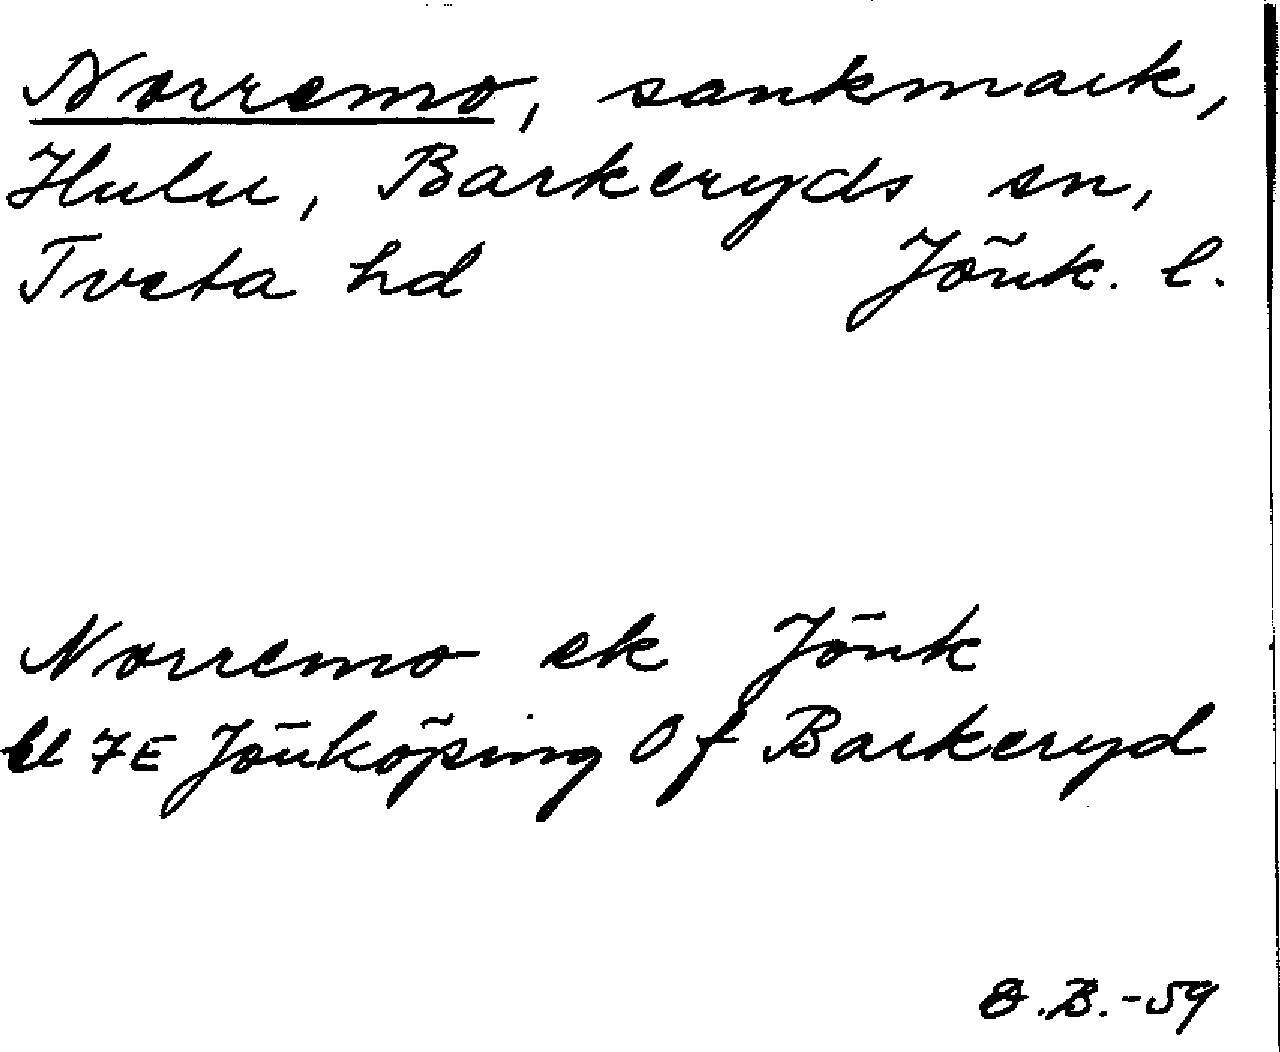 Norremo, sankmark,
Hulu, Barkeryds sn,
Tveta hd Jönk. l.
Norremo ek Jönk
bl 7E Jönköping 0 f Barkeryd
B.-59